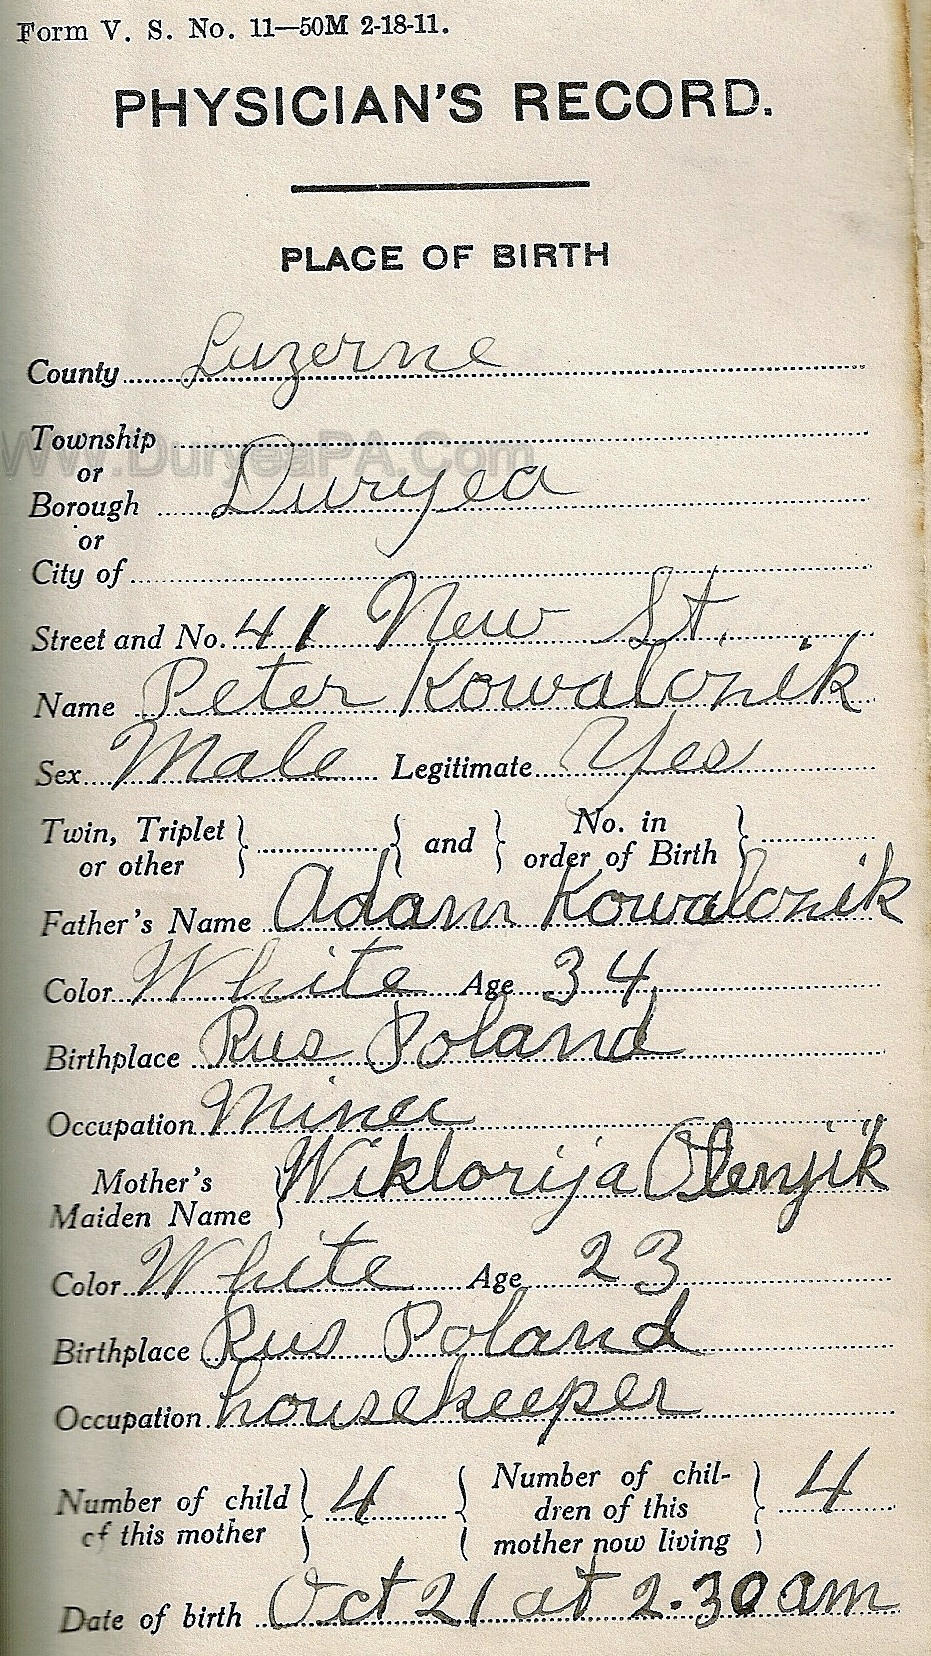 Form V. S. No. 11—50M 2-18-11.
PHYSICIAN'S RECORD.
PLACE OF BIRTH
County Luzerne
Township
www.DuryeaPA.Com
or
Borough Duryea
or
City of
Street and No. 41 New St.
Name Peter Kowalcznik
Sex Male Legitimate Yes
Twin, Triplet or other } { and { No. in order of Birth }
Father's Name Adam Kowalcznik
Color White Age 34
Birthplace Rus Poland
Occupation Miner
Mother's Maiden Name } Wiktorija
Color White Age 23
Birthplace Rus Poland
Occupation housekeeper
Number of child of this mother } 4 { Number of children of this mother now living } 4
Date of birth Oct 21 at 2.30 am